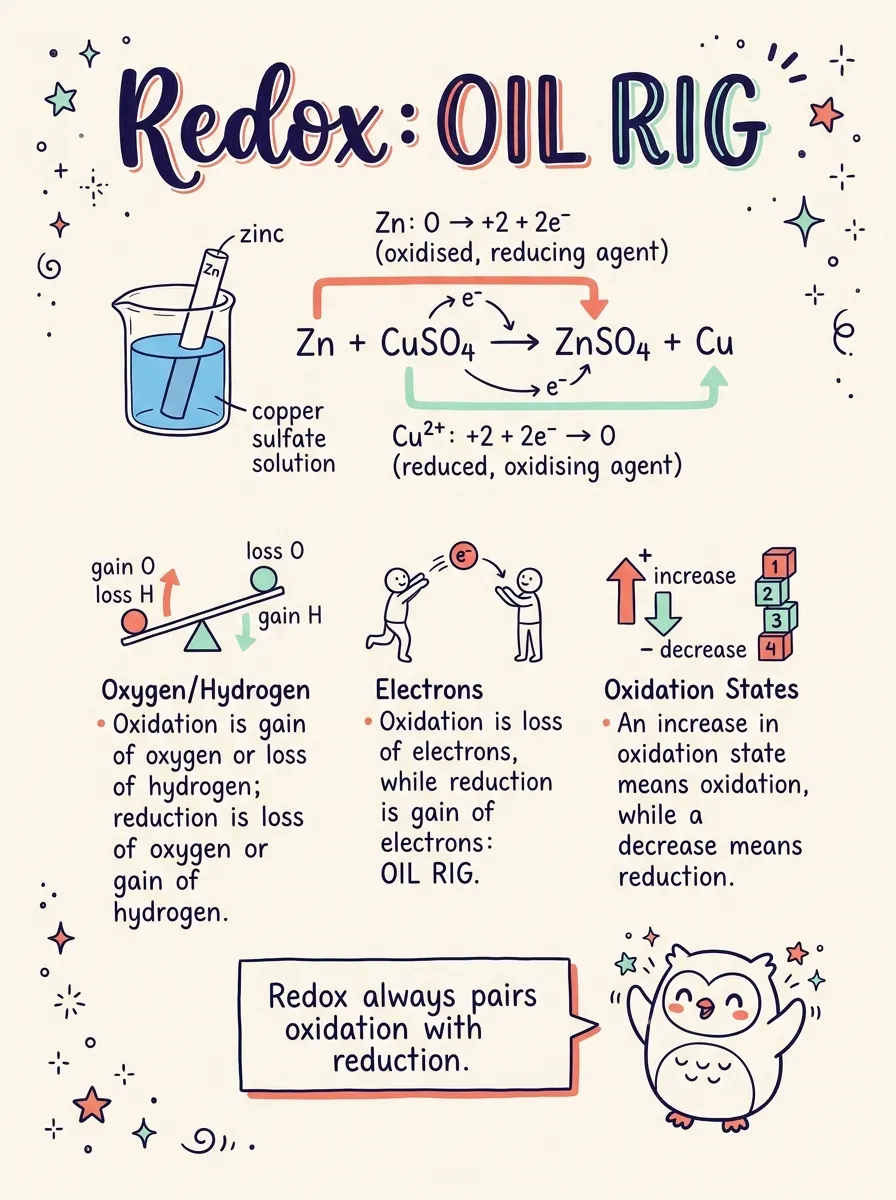 Redox: OIL RIG
zinc
Zn
copper
sulfate
solution
Zn: 0 → +2 + 2e⁻
(oxidised, reducing agent)
e⁻
Zn + CuSO₄ → ZnSO₄ + Cu
e⁻
Cu²⁺: +2 + 2e⁻ → 0
(reduced, oxidising agent)
gain O
loss H
loss O
gain H
Oxygen/Hydrogen
• Oxidation is gain
of oxygen or loss
of hydrogen;
reduction is loss
of oxygen or
gain of
hydrogen.
e⁻
Electrons
• Oxidation is loss
of electrons,
while reduction
is gain of
electrons:
OIL RIG.
+
increase
− decrease
1
2
3
4
Oxidation States
• An increase in
oxidation state
means oxidation,
while a
decrease means
reduction.
Redox always pairs
oxidation with
reduction.